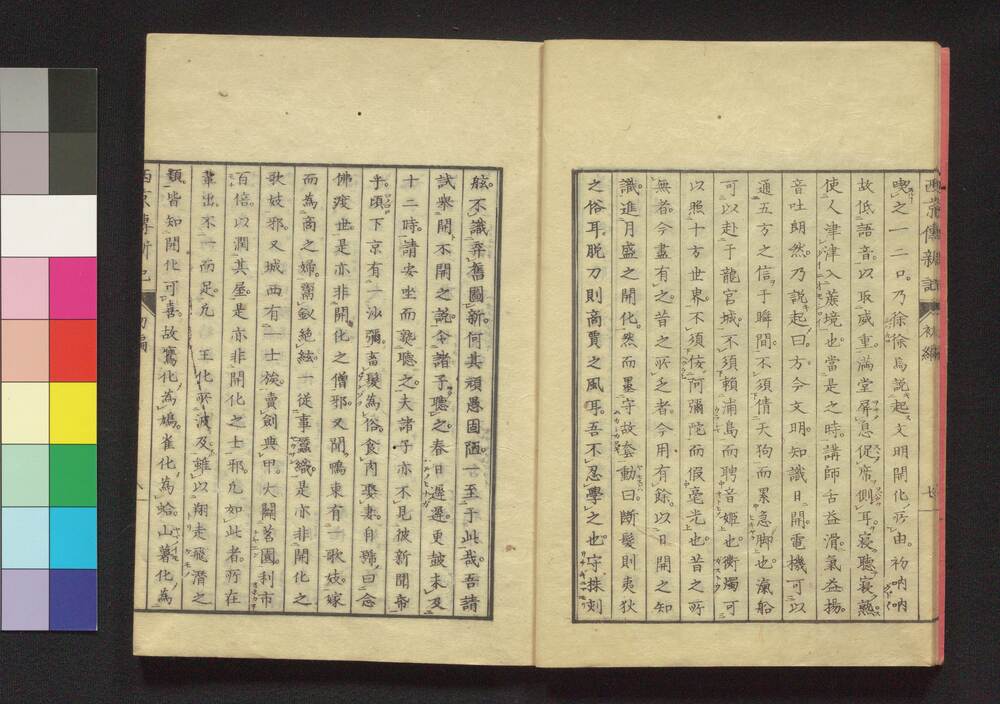 西京傳新記 初編 七
喫之一二口乃徐徐焉説起文明開化所由初吶吶
故低語音以取威重滿堂屏息促席側耳寂聽寂熟
使人津津入蔗境也當是之時講師舌益滑氣益揚
音吐朗然乃説起曰方今文明知識日開電機可以
通五方之信于瞬間不須倩天狗而累急脚也滊船
可以赴于龍宮城不須賴浦島而聘音姬也衝濁可
以照十方世界不須倰阿彌陀而假毫光也昔之所
無者今盡有之昔之所乏者今用有餘以日開之知
識進月盛之開化然而墨守故套動曰斷髮則夷狄
之俗耳脱刀則商賈之風耳吾不忍學之也守株刻
舷不識弃舊圖新何其頑愚固陋一至于此哉吾請
試擧開不開之説令諸子聽之春日遲遲更鼓未及
十二時請安坐而熟聽之夫諸子亦不見彼新聞帋
乎頃下京有一沙彌畜髮為俗食肉娶妻自歸曰念
佛渡世是亦非開化之僧邪又聞鴨東有一歌妓嫁
而為商之婦鬻釵絶絃一從事蠶織是亦非開化之
歌妓邪又城西有一士族賣劍典甲大闢茗園利市
百倍以潤其屋是亦非開化之士邪凡如此者所在
輩出不一而足凡 王化所波及雖以翔走飛潛之
類皆知開化可喜故鷹化為鳩雀化為蛤山藥化為
西京傳新記 初編 八